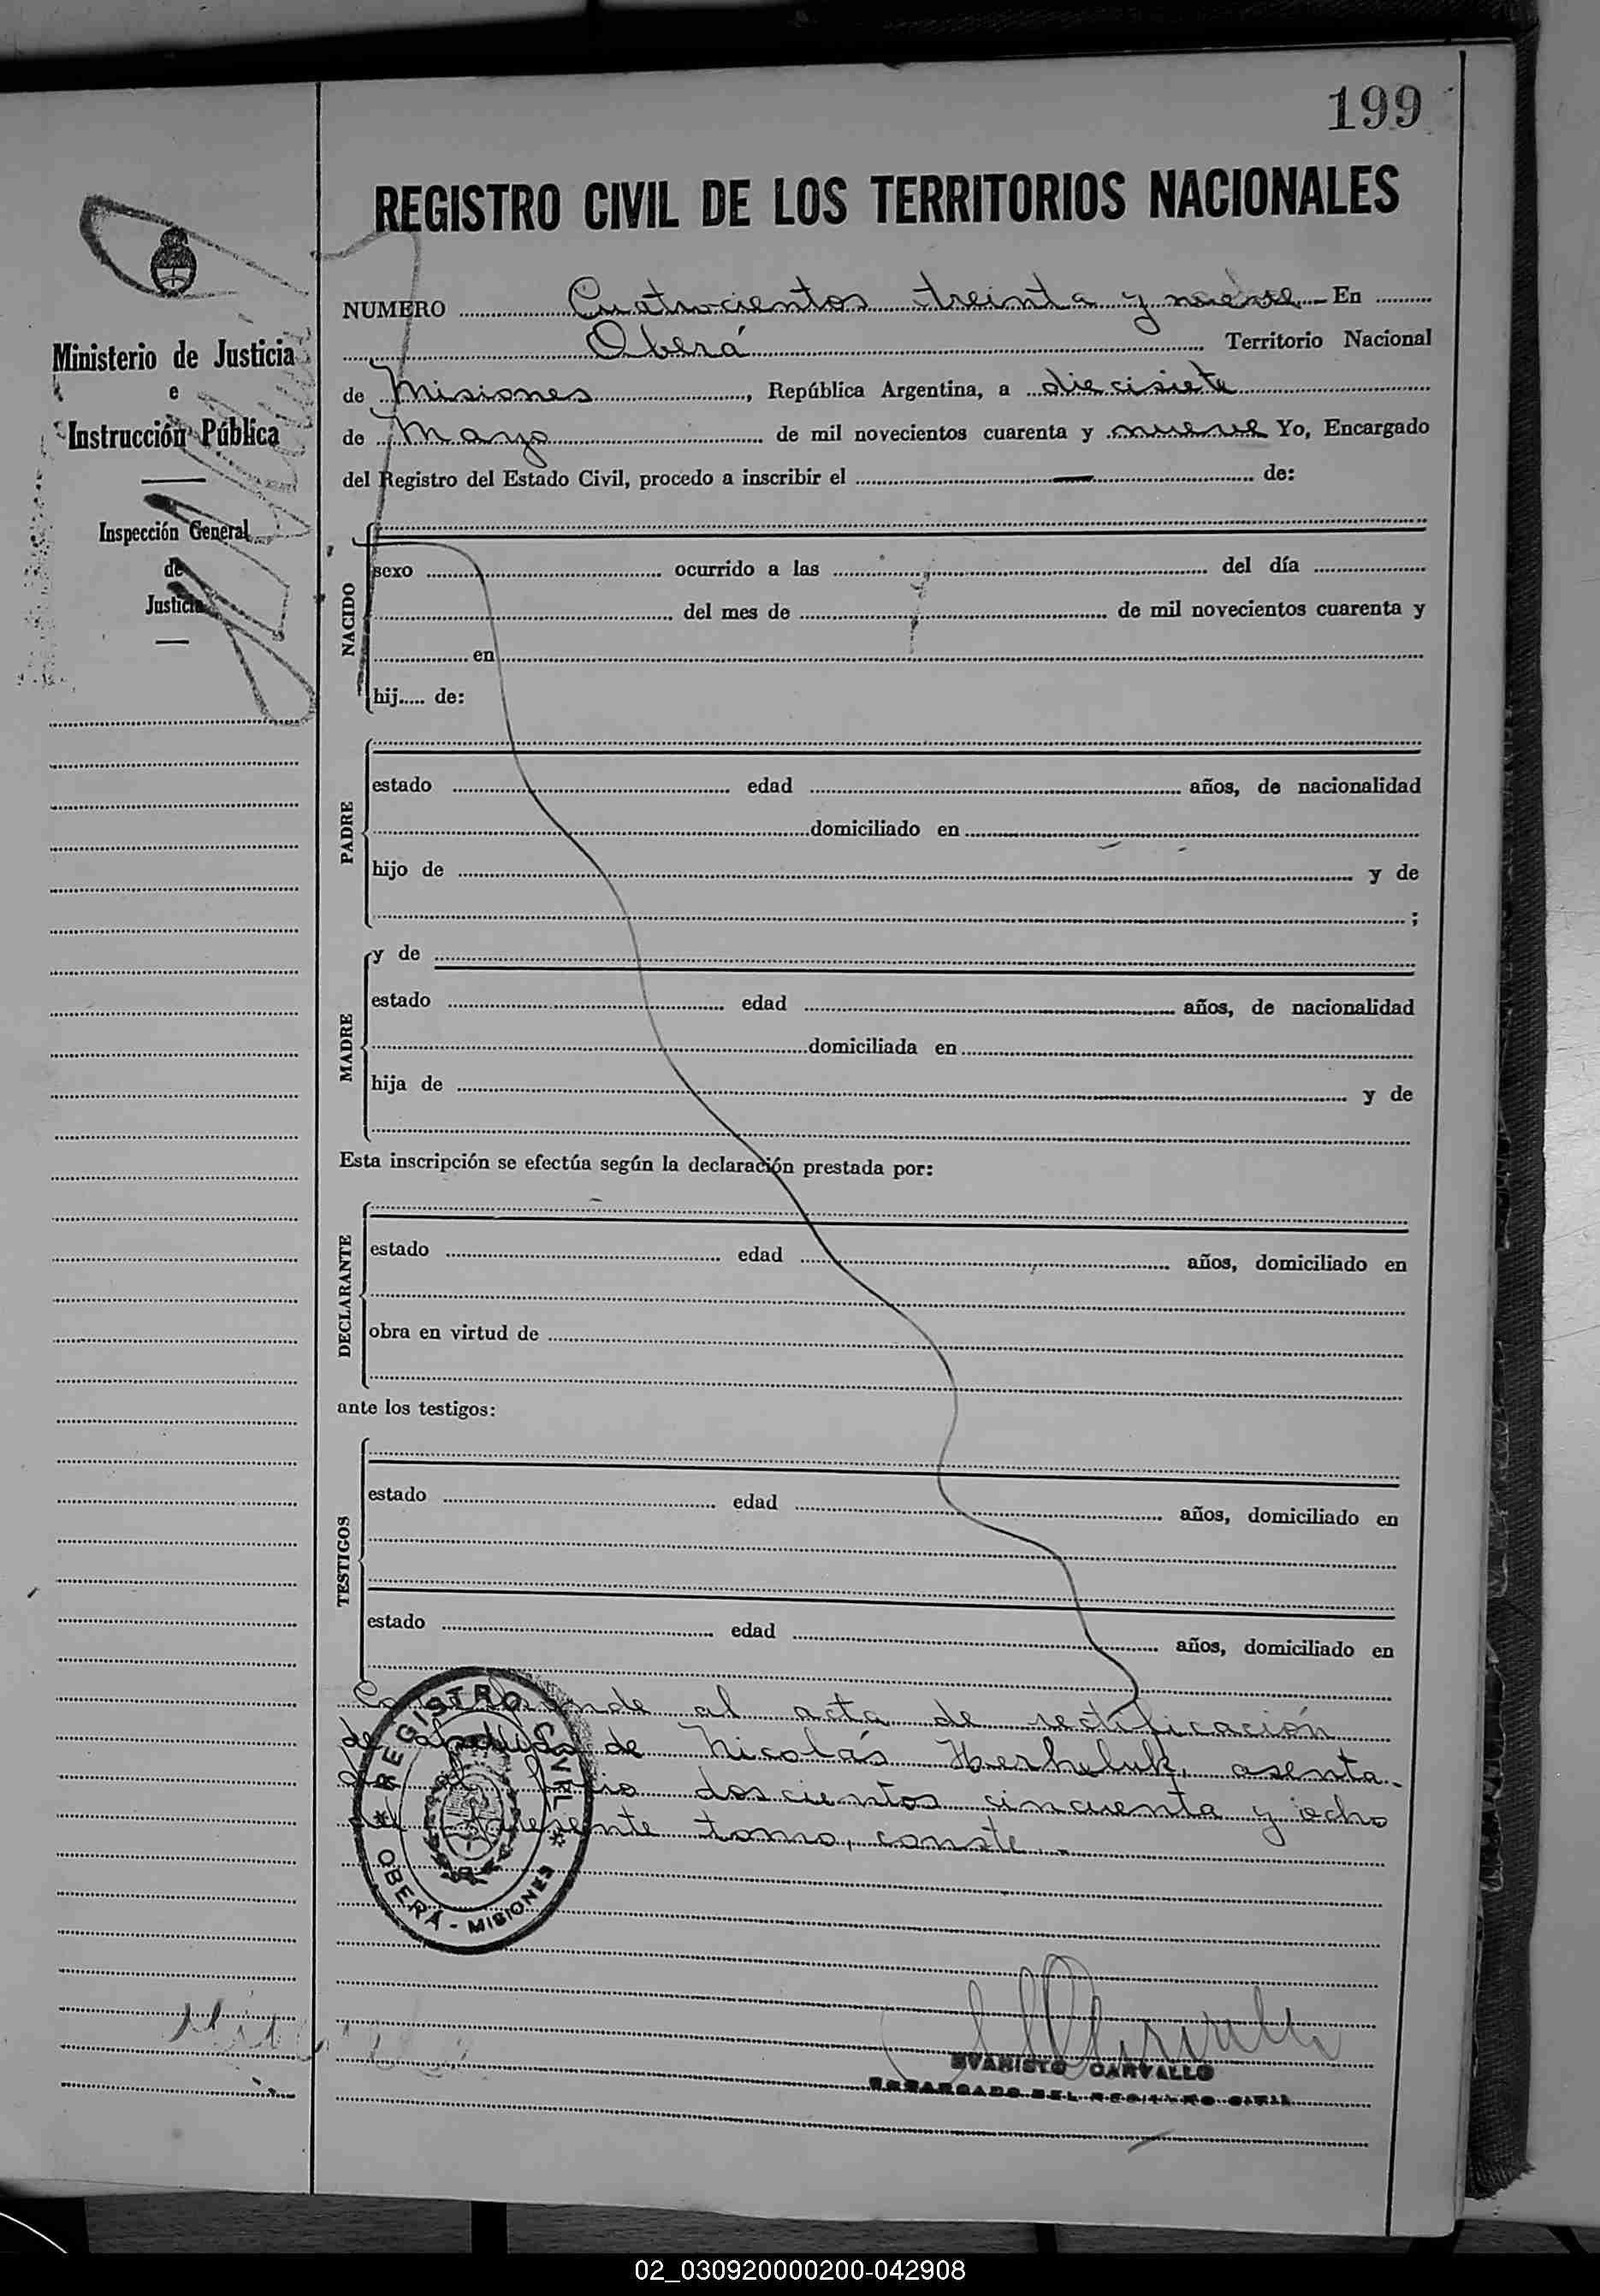 199
REGISTRO CIVIL DE LOS TERRITORIOS NACIONALES
Ministerio de Justicia
e
Instrucción Pública
Inspección General
de
Justicia
NUMERO Cuatrocientos treinta y nueve En
Oberá Territorio Nacional
de Misiones, República Argentina, a diecisiete
de Mayo de mil novecientos cuarenta y nueve Yo, Encargado
del Registro del Estado Civil, procedo a inscribir el — de:
NACIDO
sexo ocurrido a las del día
del mes de de mil novecientos cuarenta y
en
hij..... de:
PADRE
estado edad años, de nacionalidad
domiciliado en
hijo de y de
;
MADRE
y de
estado edad años, de nacionalidad
domiciliada en
hija de y de
Esta inscripción se efectúa según la declaración prestada por:
DECLARANTE
estado edad años, domiciliado en
obra en virtud de
ante los testigos:
TESTIGOS
estado edad años, domiciliado en
estado edad años, domiciliado en
al acta de rectificación
de de Nicolás asenta-
doscientos cincuenta y ocho
presente tomo, conste.
REGISTRO CIVIL
OBERÁ - MISIONES
EVARISTO CARVALLO
ENCARGADO DEL REGISTRO CIVIL
02_030920000200-042908